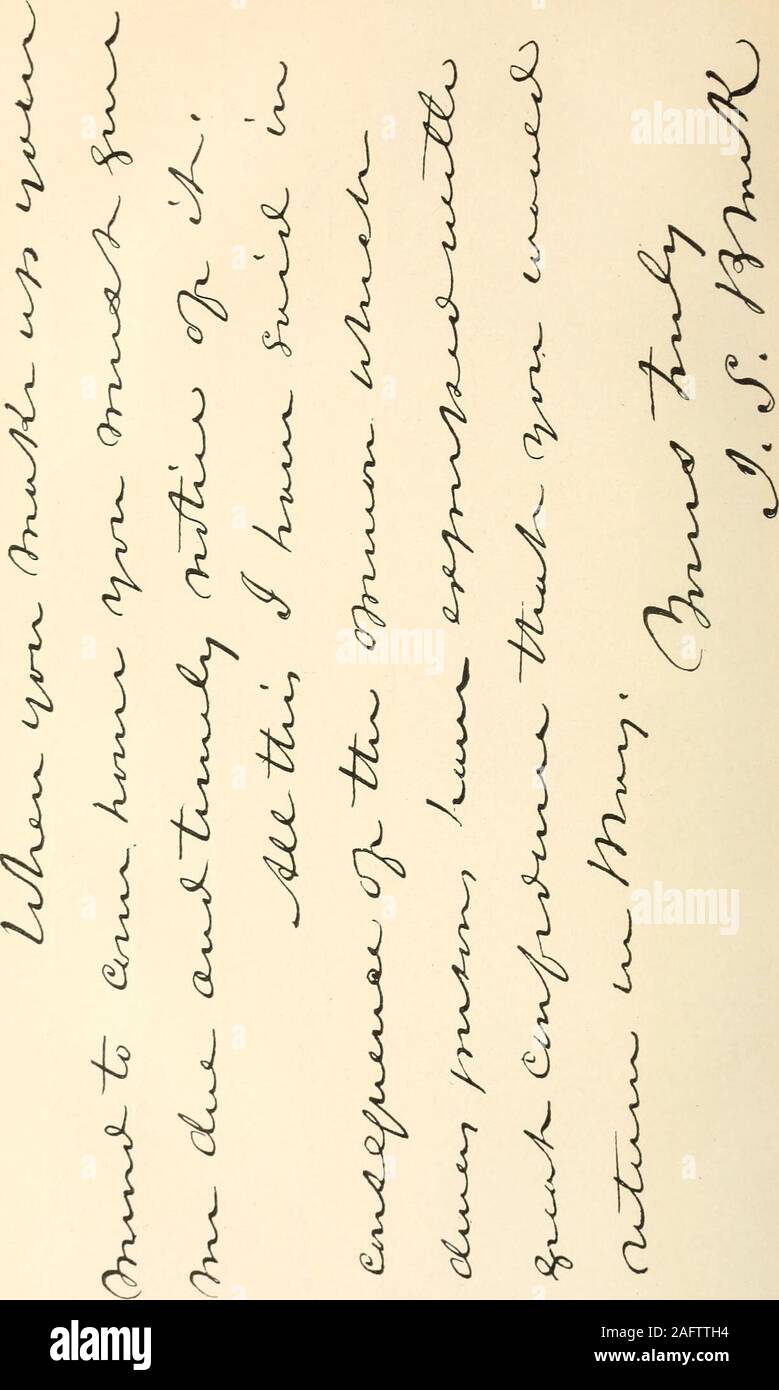 When you make up your
mind to come home you must give
me due and timely notice of it.
All this I have said in
consequence of the opinion which
divers persons have expressed with
great confidence that you would
return in May.
Yours truly
J. S. Black
alamy
Image ID: 2AFTTH4
www.alamy.com